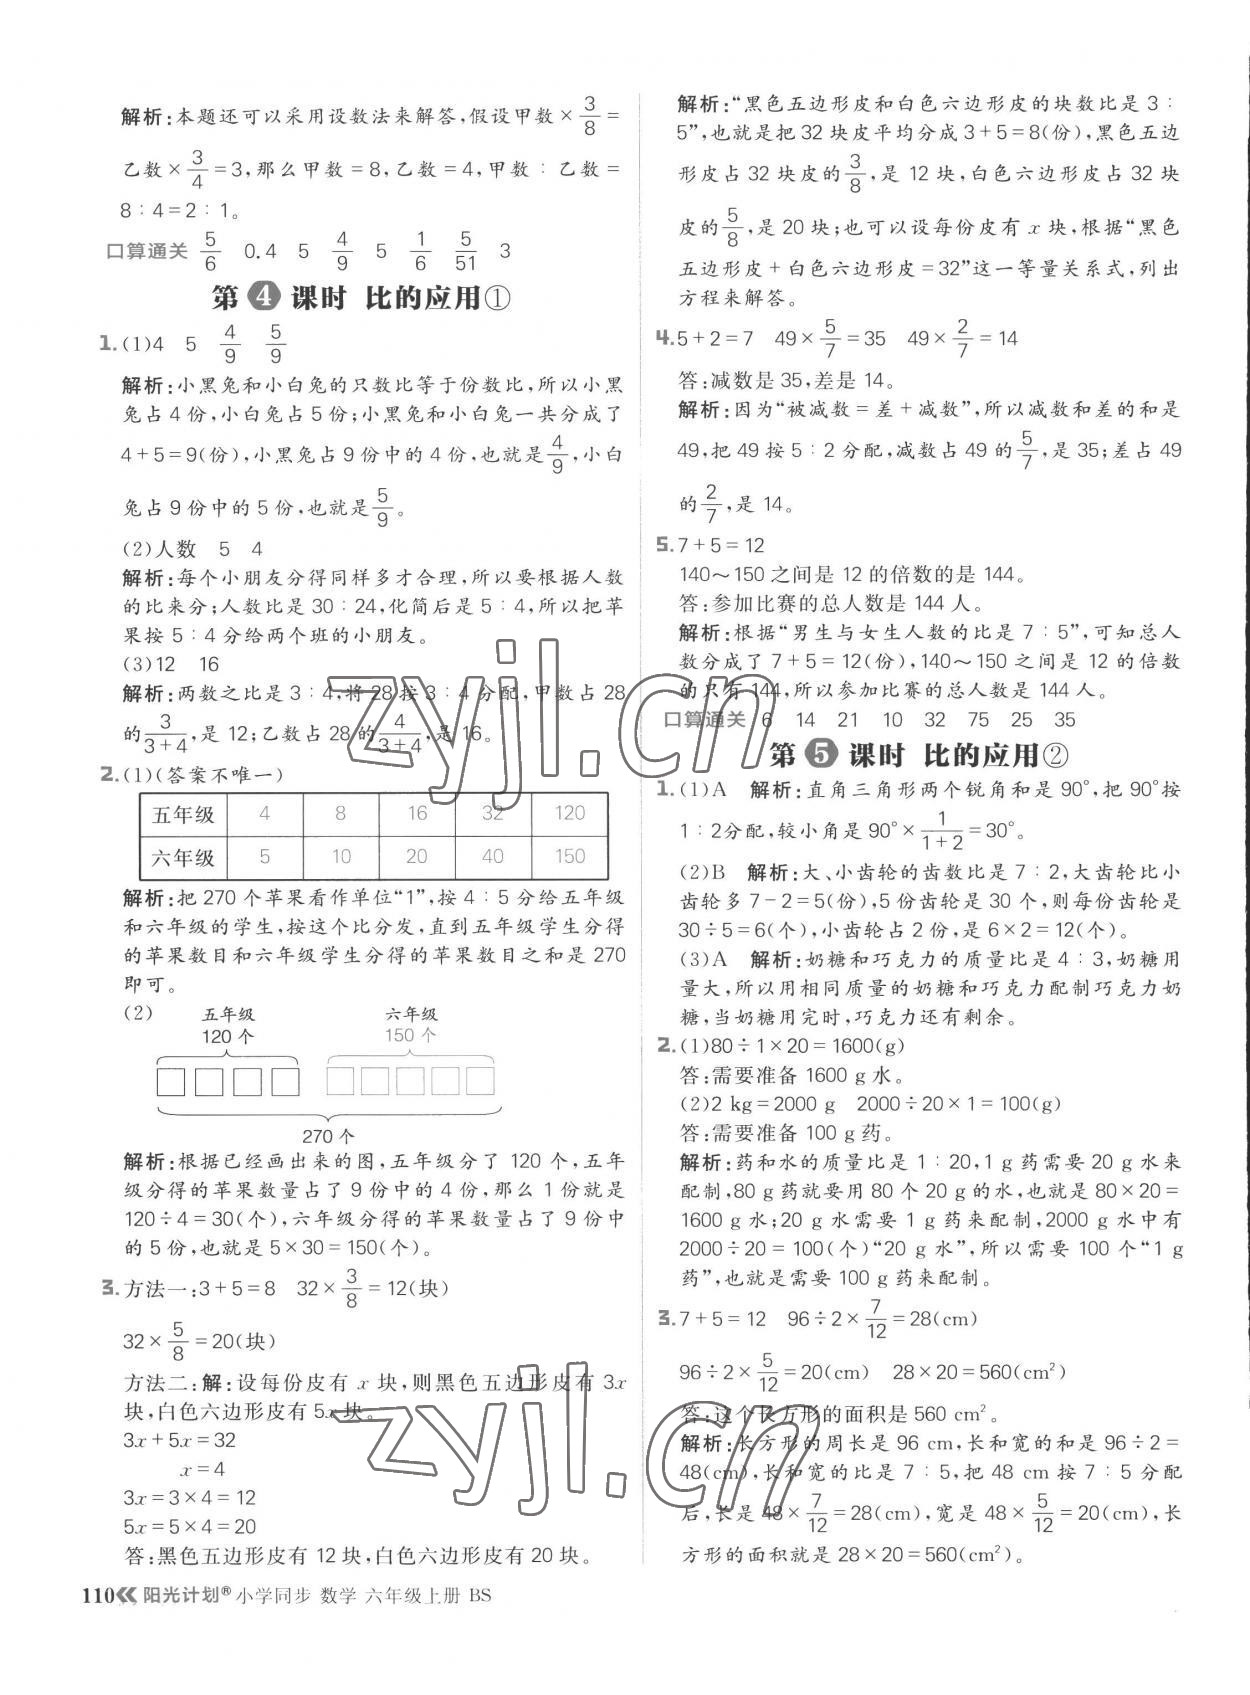 解析:本题还可以采用设数法来解答,假设甲数×3/8=
乙数×3/4=3,那么甲数=8,乙数=4,甲数∶乙数=
8∶4=2∶1。
口算通关 5/6 0.4 5 4/9 5 1/6 5/51 3
第4课时 比的应用①
1.(1)4 5 4/9 5/9
解析:小黑兔和小白兔的只数比等于份数比,所以小黑
兔占4份,小白兔占5份;小黑兔和小白兔一共分成了
4+5=9(份),小黑兔占9份中的4份,也就是4/9,小白
兔占9份中的5份,也就是5/9。
(2)人数 5 4
解析:每个小朋友分得同样多才合理,所以要根据人数
的比来分;人数比是30∶24,化简后是5∶4,所以把苹
果按5∶4分给两个班的小朋友。
(3)12 16
解析:两数之比是3∶4,将28按3∶4分配,甲数占28
的3/(3+4),是12;乙数占28的4/(3+4),是16。
2.(1)(答案不唯一)
五年级 4 8 16 32 120
六年级 5 10 20 40 150
解析:把270个苹果看作单位“1”,按4∶5分给五年级
和六年级的学生,按这个比分发,直到五年级学生分得
的苹果数目和六年级学生分得的苹果数目之和是270
即可。
(2) 五年级 六年级
120个 150个
270个
解析:根据已经画出来的图,五年级分了120个,五年
级分得的苹果数量占了9份中的4份,那么1份就是
120÷4=30(个),六年级分得的苹果数量占了9份中
的5份,也就是5×30=150(个)。
3.方法一:3+5=8 32×3/8=12(块)
32×5/8=20(块)
方法二:解:设每份皮有x块,则黑色五边形皮有3x
块,白色六边形皮有5x块。
3x+5x=32
x=4
3x=3×4=12
5x=5×4=20
答:黑色五边形皮有12块,白色六边形皮有20块。
解析:“黑色五边形皮和白色六边形皮的块数比是3∶
5”,也就是把32块皮平均分成3+5=8(份),黑色五边
形皮占32块皮的3/8,是12块,白色六边形皮占32块
皮的5/8,是20块;也可以设每份皮有x块,根据“黑色
五边形皮+白色六边形皮=32”这一等量关系式,列出
方程来解答。
4.5+2=7 49×5/7=35 49×2/7=14
答:减数是35,差是14。
解析:因为“被减数=差+减数”,所以减数和差的和是
49,把49按5∶2分配,减数占49的5/7,是35;差占49
的2/7,是14。
5.7+5=12
140～150之间是12的倍数的是144。
答:参加比赛的总人数是144人。
解析:根据“男生与女生人数的比是7∶5”,可知总人
数分成了7+5=12(份),140～150之间是12的倍数
的只有144,所以参加比赛的总人数是144人。
口算通关 6 14 21 10 32 75 25 35
第5课时 比的应用②
1.(1)A 解析:直角三角形两个锐角和是90°,把90°按
1∶2分配,较小角是90°×1/(1+2)=30°。
(2)B 解析:大、小齿轮的齿数比是7∶2,大齿轮比小
齿轮多7-2=5(份),5份齿轮是30个,则每份齿轮是
30÷5=6(个),小齿轮占2份,是6×2=12(个)。
(3)A 解析:奶糖和巧克力的质量比是4∶3,奶糖用
量大,所以用相同质量的奶糖和巧克力配制巧克力奶
糖,当奶糖用完时,巧克力还有剩余。
2.(1)80÷1×20=1600(g)
答:需要准备1600 g水。
(2)2 kg=2000 g 2000÷20×1=100(g)
答:需要准备100 g药。
解析:药和水的质量比是1∶20,1 g药需要20 g水来
配制,80 g药就要用80个20 g的水,也就是80×20=
1600 g水;20 g水需要1 g药来配制,2000 g水中有
2000÷20=100(个)“20 g水”,所以需要100个“1 g
药”,也就是需要100 g药来配制。
3.7+5=12 96÷2×7/12=28(cm)
96÷2×5/12=20(cm) 28×20=560(cm²)
答:这个长方形的面积是560 cm²。
解析:长方形的周长是96 cm,长和宽的和是96÷2=
48(cm),长和宽的比是7∶5,把48 cm按7∶5分配
后,长是48×7/12=28(cm),宽是48×5/12=20(cm),长
方形的面积就是28×20=560(cm²)。
110 阳光计划® 小学同步 数学 六年级上册 BS
zyjl.cn
zyjl.cn